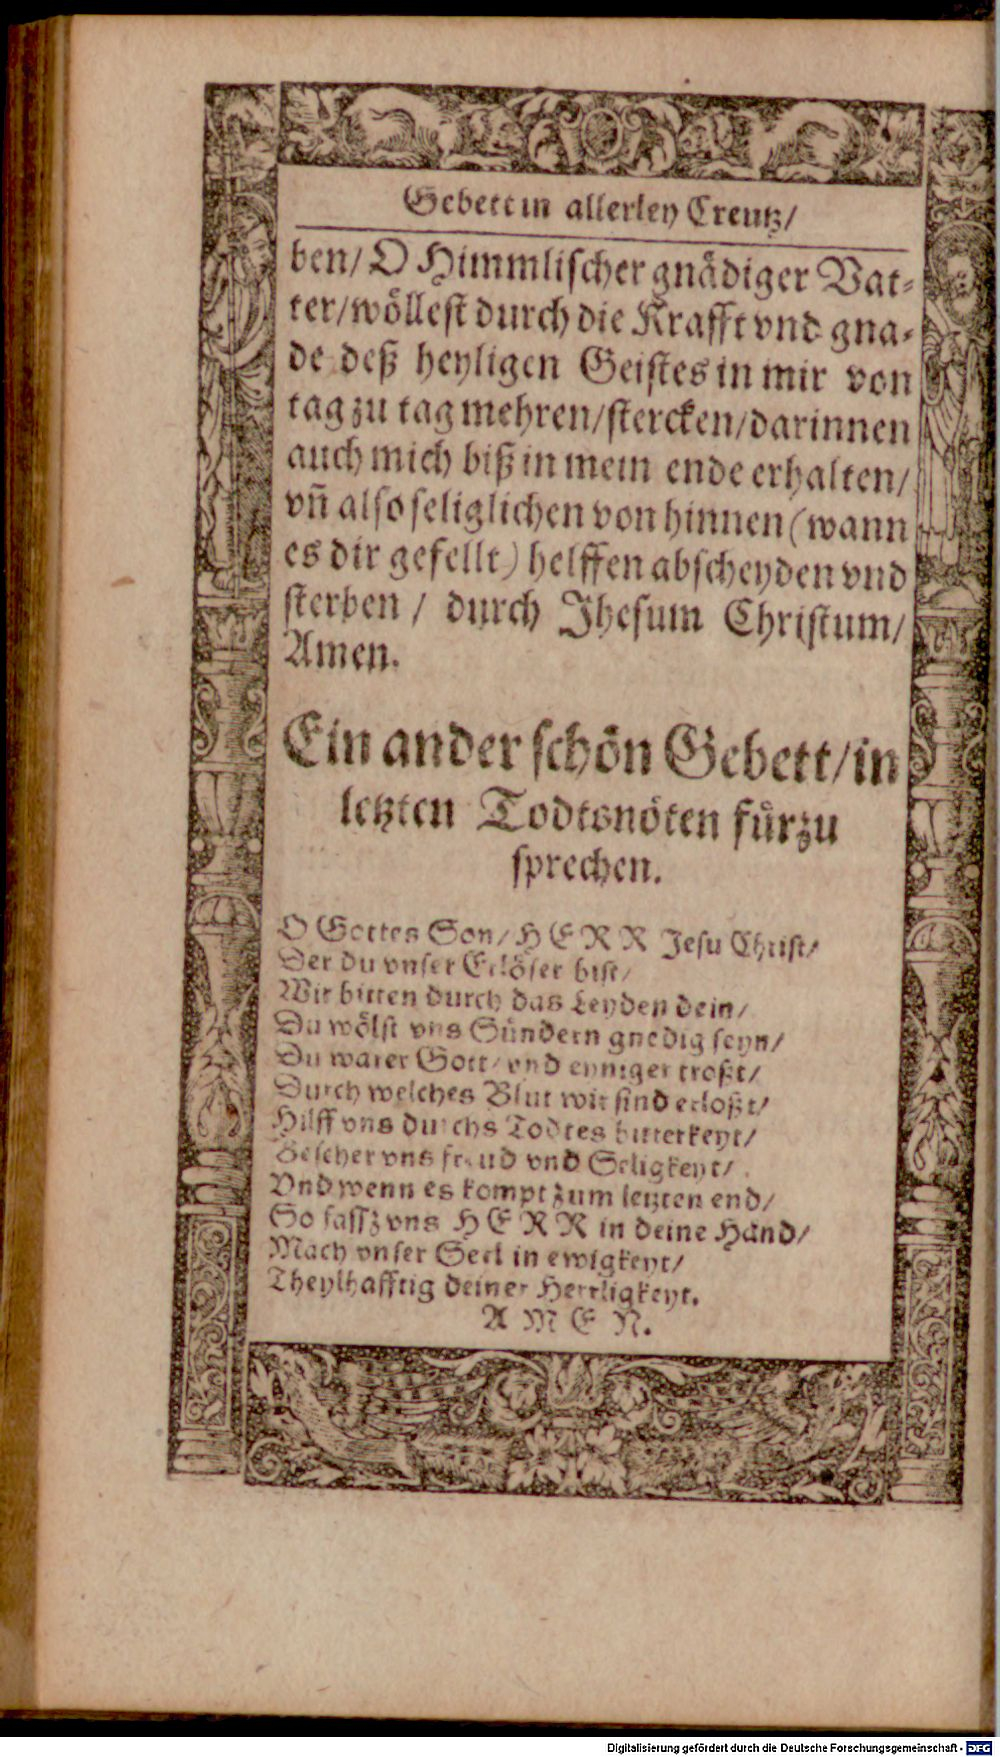 Gebett in allerley Creutz/
ben/ O Himmlischer gnådiger Vat⸗
ter/wöllest durch die Krafft vnd gna⸗
de deß heyligen Geistes in mir von
tag zu tag mehren/stercken/darinnen
auch mich biß in mein ende erhalten/
vñ also seliglichen von hinnen (wann
es dir gefellt) helffen abscheyden vnd
sterben / durch Jhesum Christum/
Amen.
Ein ander schön Gebett/in
letzten Todtsnöten fürzu
sprechen.
O Gottes Son/ HERR Jesu Christ/
Der du vnser Erlöser bist/
Wir bitten durch das Leyden dein/
Du wölst vns Sündern gnedig seyn/
Du warer Gott/ vnd eyniger troßt/
Durch welches Blut wir sind erloßt/
Hilff vns durchs Todtes bitterkeyt/
Bescher vns freud vnd Seligkeyt/
Vnd wenn es kompt zum letzten end/
So fassz vns HERR in deine Händ/
Mach vnser Seel in ewigkeyt/
Theylhafftig deiner Herrligkeyt.
AMEN.
Digitalisierung gefördert durch die Deutsche Forschungsgemeinschaft - DFG